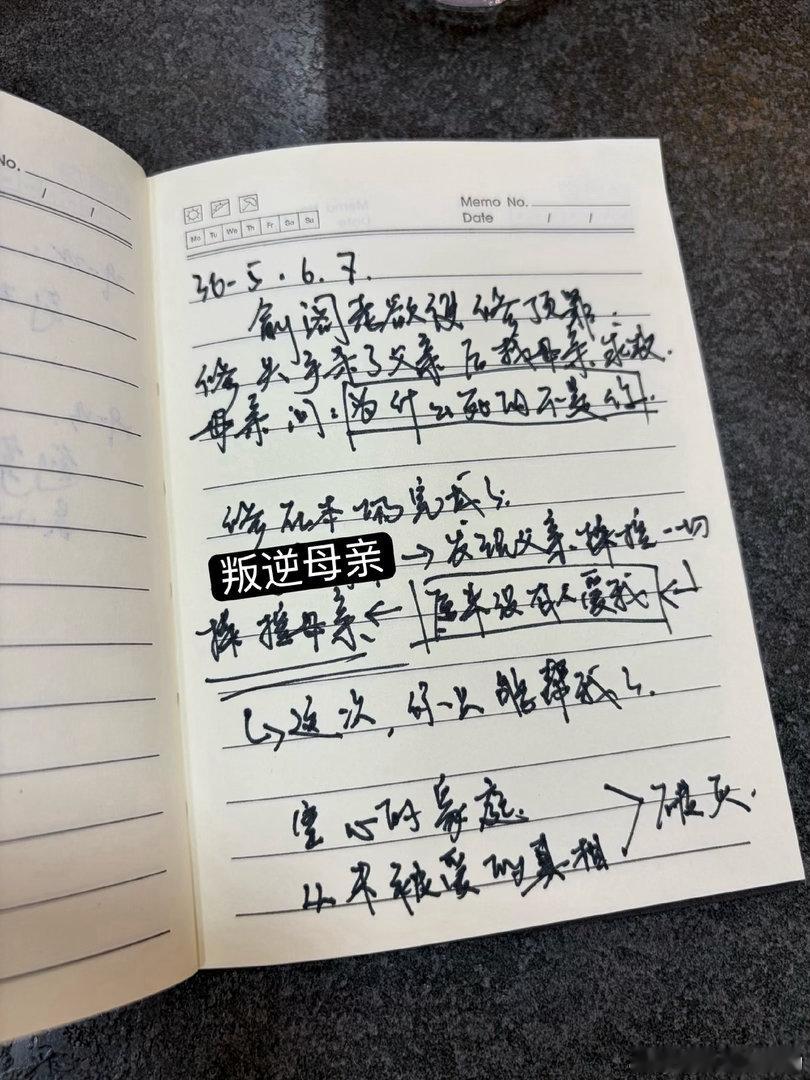 No.
/ /
Memo No.
Date / /
Mo Tu We Th Fr Sa Su
36-5.6.7.
剑阁老欲设修顶罪.
修失手杀了父亲后找母亲求救.
母亲问:为什么死的不是你
修在本场完成了.
叛逆母亲→发现父亲操控一切
操控母亲←原来没有人爱我←
↳这次,你一只能帮我了.
空心的家庭.
从未被爱的真相 > 破灭.